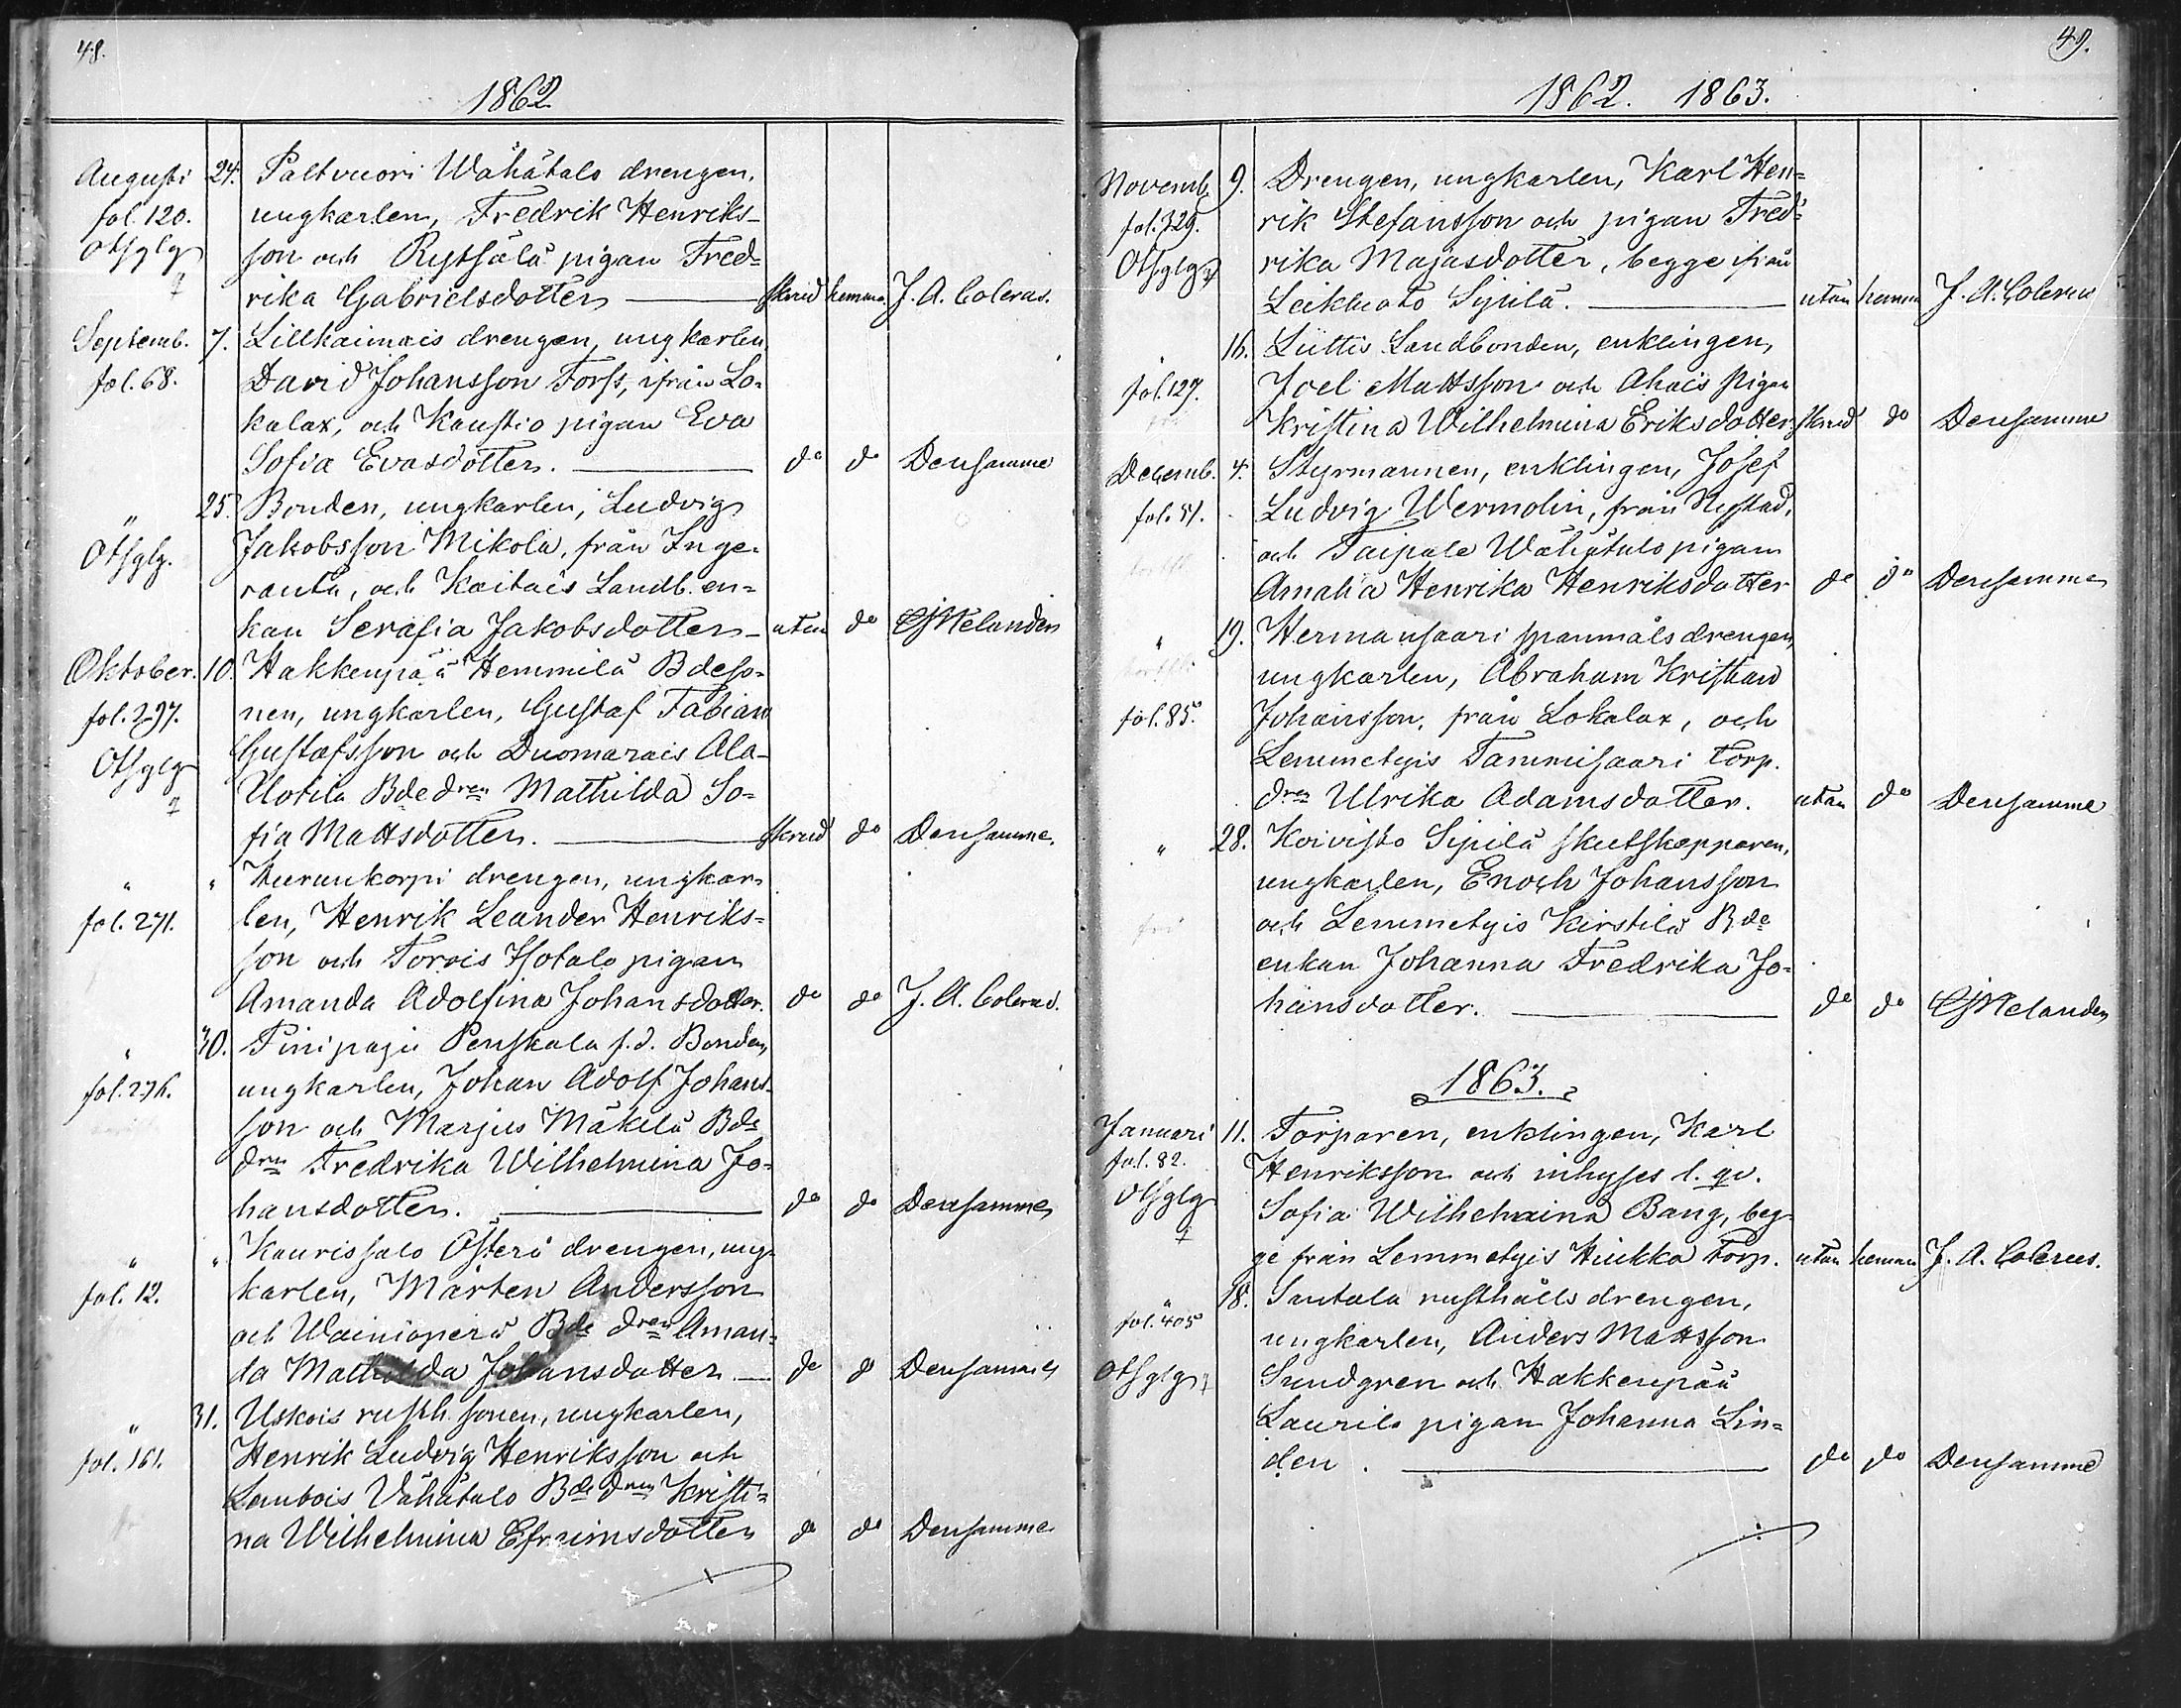 48.
1862
Augusti 24. Paltvuori Wähätalo drengen,
fol. 120. ungkarlen, Fredrik Henriks-
Otsglg son och Rytsälä pigan Fred-
rika Gabrielsdotter — skrud hemma J. A. Colerus.
Septemb. 7. Lillkaimais drengen, ungkarlen
fol. 68. David Johansson Forss, ifrån Lo-
kalax, och Kaustio pigan Eva
Sofia Evasdotter. — do do Densamme
" 25. Bonden, ungkarlen, Ludvig
Otsglg. Jakobsson Mikola, från Inge-
ranta, och Kaitais Landb. en-
kan Serafia Jakobsdotter - utan do Melander
Oktober. 10. Hakkenpää Hemmilä Bdeso-
fol. 297. nen, ungkarlen, Gustaf Fabian
Otsglg Gustafsson och Duomarais Ala-
Uotila Bde dren Mathilda So-
fia Mattsdotter. — skrud do Densamme.
" " Kurunkorpi drengen, ungkar-
fol. 271. len, Henrik Leander Henriks-
son och Torois Isotalo pigan
Amanda Adolfina Johansdotter. do do J. A. Colerus.
" 30. Pinipaju Penskala f.d. Bonden,
fol. 276. ungkarlen, Johan Adolf Johans-
son och Marjus Mäkelä Bde
dren Fredrika Wilhelmina Jo-
hansdotter. — do do Densamme
" " Kaurissalo Österi drengen, ung-
fol. 12. karlen, Mårten Andersson
och Wainionperä Bde dren Aman-
da Mathilda Johansdotter — do do Densamme
" 31. Uskois rusth. sonen, ungkarlen,
fol. 161. Henrik Ludvig Henriksson och
Laubois Vähätalo Bde dren Kristi-
na Wilhelmina Efraimsdotter do do Densamme
49.
1862. 1863.
Novemb. 9. Drengen, ungkarlen, Karl Hen-
fol. 329. rik Stefansson och pigan Fred-
Otsglg rika Majasdotter, begge ifrån
Leikluoto Sipilä. — utan hemma J. A. Colerus
16. Liittis Landbonden, enklingen,
fol. 127. Joel Mattsson och Ahais pigan
Kristina Wilhelmina Eriksdotter, skrud do Densamme
Decemb. 4. Styrmannen, enklingen, Josef
fol. 51. Ludvig Wermolin, från Nystad,
och Taipale Wähätalo pigan
Amalia Henrika Henriksdotter do do Densamme
" 19. Hermansaari spanmåls drengen,
ungkarlen, Abraham Kristian
fol. 85. Johansson, från Lokalax, och
Lemmetyis Tammisaari torp.
dren Ulrika Adamsdotter. utan do Densamme
" 28. Koivisto Sipilä skutskepparen,
ungkarlen, Enoch Johansson
och Lemmetyis Kirstilä Bde
enkan Johanna Fredrika Jo-
hansdotter. — do do Melander
1863.
Januari 11. Torparen, enklingen, Karl
fol. 82. Henriksson och inhyses l. qv.
Otsglg Sofia Wilhelmina Bang, beg-
ge från Lemmetyis Hiukka torp. utan hemma J. A. Colerus.
" 18. Santala rusthålls drengen,
fol. 405 ungkarlen, Anders Mattsson
Otsglg Sundgren och Hakkenpää
Laurila pigan Johanna Lin-
den. — do do Densamme